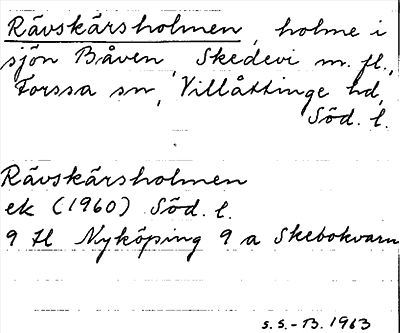 Rävskärsholmen, holme i
sjön Båven, Skedevi m. fl.,
Forssa sn, Villåttinge hd,
Söd. l.
Rävskärsholmen
ek (1960) Söd. l.
9 H Nyköping 9 a Skebokvarn
S.S.-B. 1963